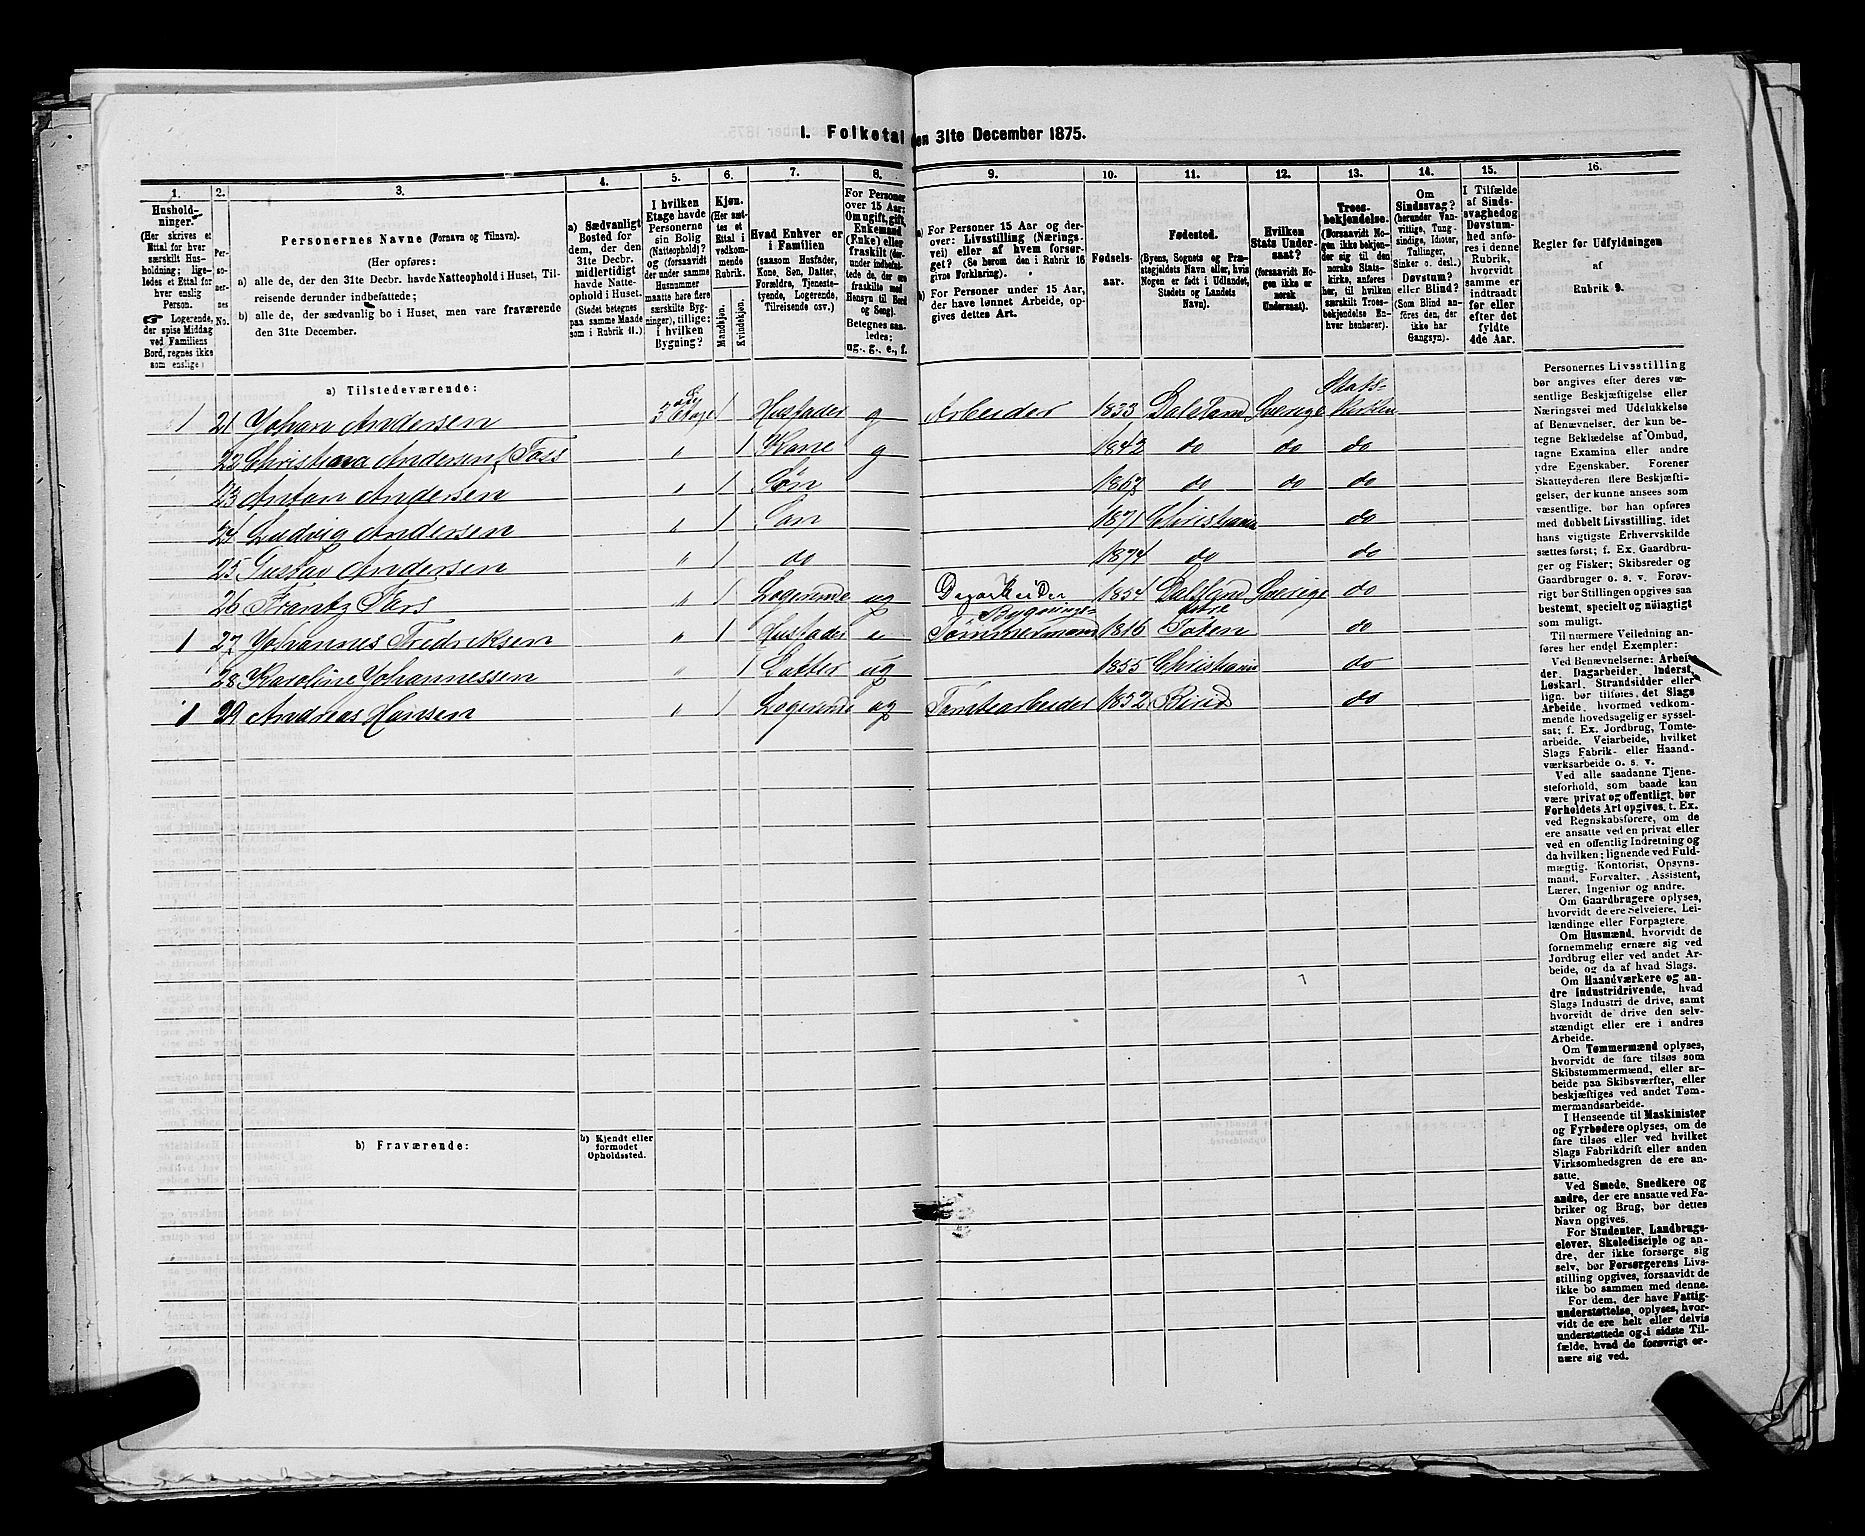 1. Folketal den 31te December 1875.
1. 2. 3. 4. 5. 6. 7. 8. 9. 10. 11. 12. 13. 14. 15. 16.
Hushold-
ninger.
(Her skrives et
Ettal for hver
særskilt Hus-
holdning; lige-
ledes et Ettal for
hver enslig
Person.
☞ Logerende,
der spise Middag
ved Familiens
Bord, regnes ikke
som enslige)
Per-
so-
ner-
nes
No.
Personernes Navne (Fornavn og Tilnavn).
(Her opføres:
a) alle de, der den 31te Decbr. havde Natteophold i Huset, Til-
reisende derunder indbefattede;
b) alle de, der sædvanlig bo i Huset, men vare fraværende
den 31te December.
a) Sædvanligt
Bosted for
dem, der den
31te Decbr.
midlertidigt
havde Natte-
ophold i Huset.
(Stedet betegnes
paa samme Maade
som i Rubrik 11.)
I hvilken
Etage havde
Personerne
sin Bolig
(Natteophold)?
og (forsaavidt
der under samme
Husnummer
maatte høre flere
særskilte Byg-
ninger), tillige:
i hvilken
Bygning?
Kjøn.
(Her sæt-
tes et
Ettal i
vedkom-
mende
Rubrik.
Mandkjøn.
Kvindekjøn.
Hvad Enhver er
i Familien
(saasom Husfader,
Kone, Søn, Datter,
Forældre, Tjeneste-
tyende, Logerende,
Tilreisende osv.)
For Personer
over 15 Aar:
Om ugift, gift,
Enkemand
(Enke) eller
fraskilt (der-
under indbefat-
tede de, der ere
fraskilte med
Hensyn til Bord
og Seng).
Betegnes saa-
ledes:
ug., g., e., f.
a) For Personer 15 Aar og der-
over: Livsstilling (Nærings-
vei) eller af hvem forsør-
get? (Se herom den i Rubrik 16
givne Forklaring).
b) For Personer under 15 Aar,
der have lønnet Arbeide, op-
gives dettes Art.
Fødsels-
aar.
Fødested.
(Byens, Sognets og Præ-
stegjeldets Navn eller, hvis
Nogen er født i Udlandet,
Stedets og Landets
Navn).
Hvilken
Stats Under-
saat?
(forsaavidt No-
gen ikke er
norsk
Undersaat).
Troes-
bekjendelse.
(Forsaavidt No-
gen ikke bekjen-
der sig til den
norske Stats-
kirke, anføres
her, til hvilken
særskilt Troes-
bekjendelse En-
hver henhører).
Om
Sindssvag?
(herunder Van-
vittige, Tung-
sindige, Idioter,
Tullinger,
Sinker o. desl.).
Døvstum?
eller Blind?
(Som Blind an-
føres den, der
ikke har
Gangsyn).
I Tilfælde
af Sinds-
svaghed og
Døvstum-
hed anfø-
res i denne
Rubrik,
hvorvidt
samme er
indtraadt
før eller
efter det
fyldte
4de Aar.
Regler for Udfyldningen
af
Rubrik 9.
a) Tilstedeværende:
1 21 Johan Andersen 3 Etage 1 Husfader g Arbeider 1833 Dalsland Sverige Stats-
kirken
22 Christiana Andersen f Foss " 1 Kone g 1842 do do do
23 Anton Andersen " 1 Søn 1867 do do do
24 Ludvig Andersen " 1 Søn 1871 Christiania do
25 Gustav Andersen " 1 do 1874 do do
26 Frantz Fors " 1 Logerende ug Dagarbeider 1854 Dalsland Sverige do
1 27 Johannes Fredriksen " 1 Husfader e Bygnings-
Tømmermand 1816 Østre
Toten do
28 Karoline Johannessen " 1 Datter ug 1855 Christiania do
1 29 Andreas Hansen " 1 Logerende ug Tomtearbeider 1852 Birid do
b) Fraværende:
b) Kjendt eller
formodet
Opholdssted.
Personernes Livsstilling
bør angives efter deres væ-
sentlige Beskjæftigelse eller
Næringsvei med Udelukkelse
af Benævnelser, der kun be-
tegne Beklædelse af Ombud,
tagne Examina eller andre
ydre Egenskaber. Forener
Skatteyderen flere Beskjæfti-
gelser, der kunne ansees som
væsentlige, bør han opføres
med dobbelt Livsstilling, idet
hans vigtigste Erhvervskilde
sættes først; f. Ex. Gaardbru-
ger og Fisker; Skibsreder og
Gaardbruger o. s. v. Forøv-
rigt bør Stillingen opgives saa
bestemt, specielt og nøiagtigt
som muligt.
Til nærmere Veiledning an-
føres her endel Exempler:
Ved Benævnelserne: Arbei-
der, Dagarbeider, Inderst,
Løskarl, Strandsidder eller
lign. bør tilføies det Slags
Arbeide, hvormed vedkom-
mende hovedsagelig er syssel-
sat; f. Ex. Jordbrug, Tomte-
arbeide, Veiarbeide, hvilket
Slags Fabrik- eller Haand-
værksarbeide o. s. v.
Ved alle saadanne Tjene-
steforhold, som baade kan
være privat og offentligt, bør
Forholdets Art opgives, t. Ex.
ved Regnskabsførere, om de
ere ansatte ved en privat eller
ved en offentlig Indretning og
da hvilken; lignende ved Fuld-
mægtig, Kontorist, Opsyns-
mand, Forvalter, Assistent,
Lærer, Ingeniør og andre.
Om Gaardbrugere oplyses,
hvorvidt de ere Selveiere, Lei-
lændinge eller Forpagtere.
Om Husmænd, hvorvidt de
fornemmelig ernære sig ved
Jordbrug eller ved andet Ar-
beide, og da af hvad Slags.
Om Haandværkere og an-
dre Industridrivende, hvad
Slags Industri de drive, samt
hvorvidt de drive den selv-
stændigt eller ere i andres
Arbeide.
Om Tømmermænd oplyses,
hvorvidt de fare tilsøs som
Skibstømmermænd, eller ar-
beide paa Skibsværfter, eller
beskjæftiges ved andet Tøm-
mermandsarbeide.
I Henseende til Maskinister
og Fyrbødere oplyses, om de
fare tilsøs eller ved hvilket
Slags Fabrikdrift eller anden
Virksomhedsgren de ere an-
satte.
Ved Smede, Snedkere og
andre, der ere ansatte ved Fa-
briker og Brug, bør dettes
Navn opgives.
For Studenter, Landbrugs-
elever, Skoledisciple og an-
dre, der ikke forsørge sig
selv, bør Forsørgerens Livs-
stilling opgives, forsaavidt de
ikke bo sammen med denne.
For dem, der have Fattig-
understøttelse, oplyses, hvor-
vidt de ere helt eller delvis
understøttede og i sidste Til-
fælde, hvad de forøvrigt er-
nære sig ved.